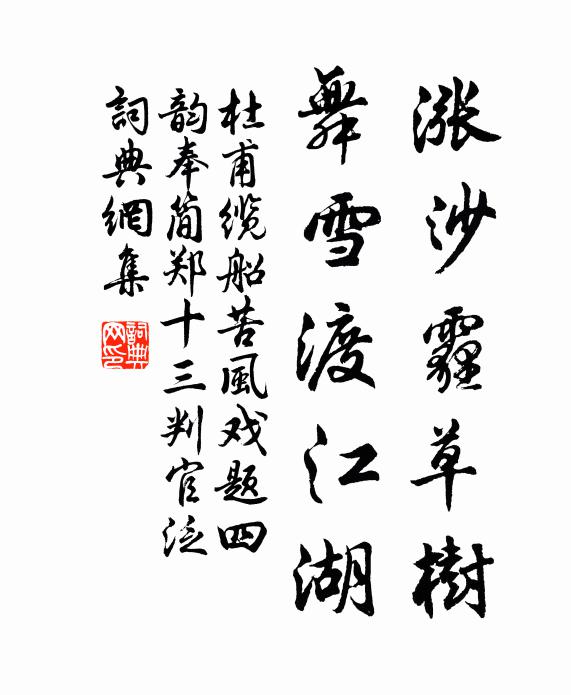 漲沙霾草樹
舞雪渡江湖
杜甫纜船苦風戏题四
韵奉简郑十三判官泛
詞典網集
詞典
网印